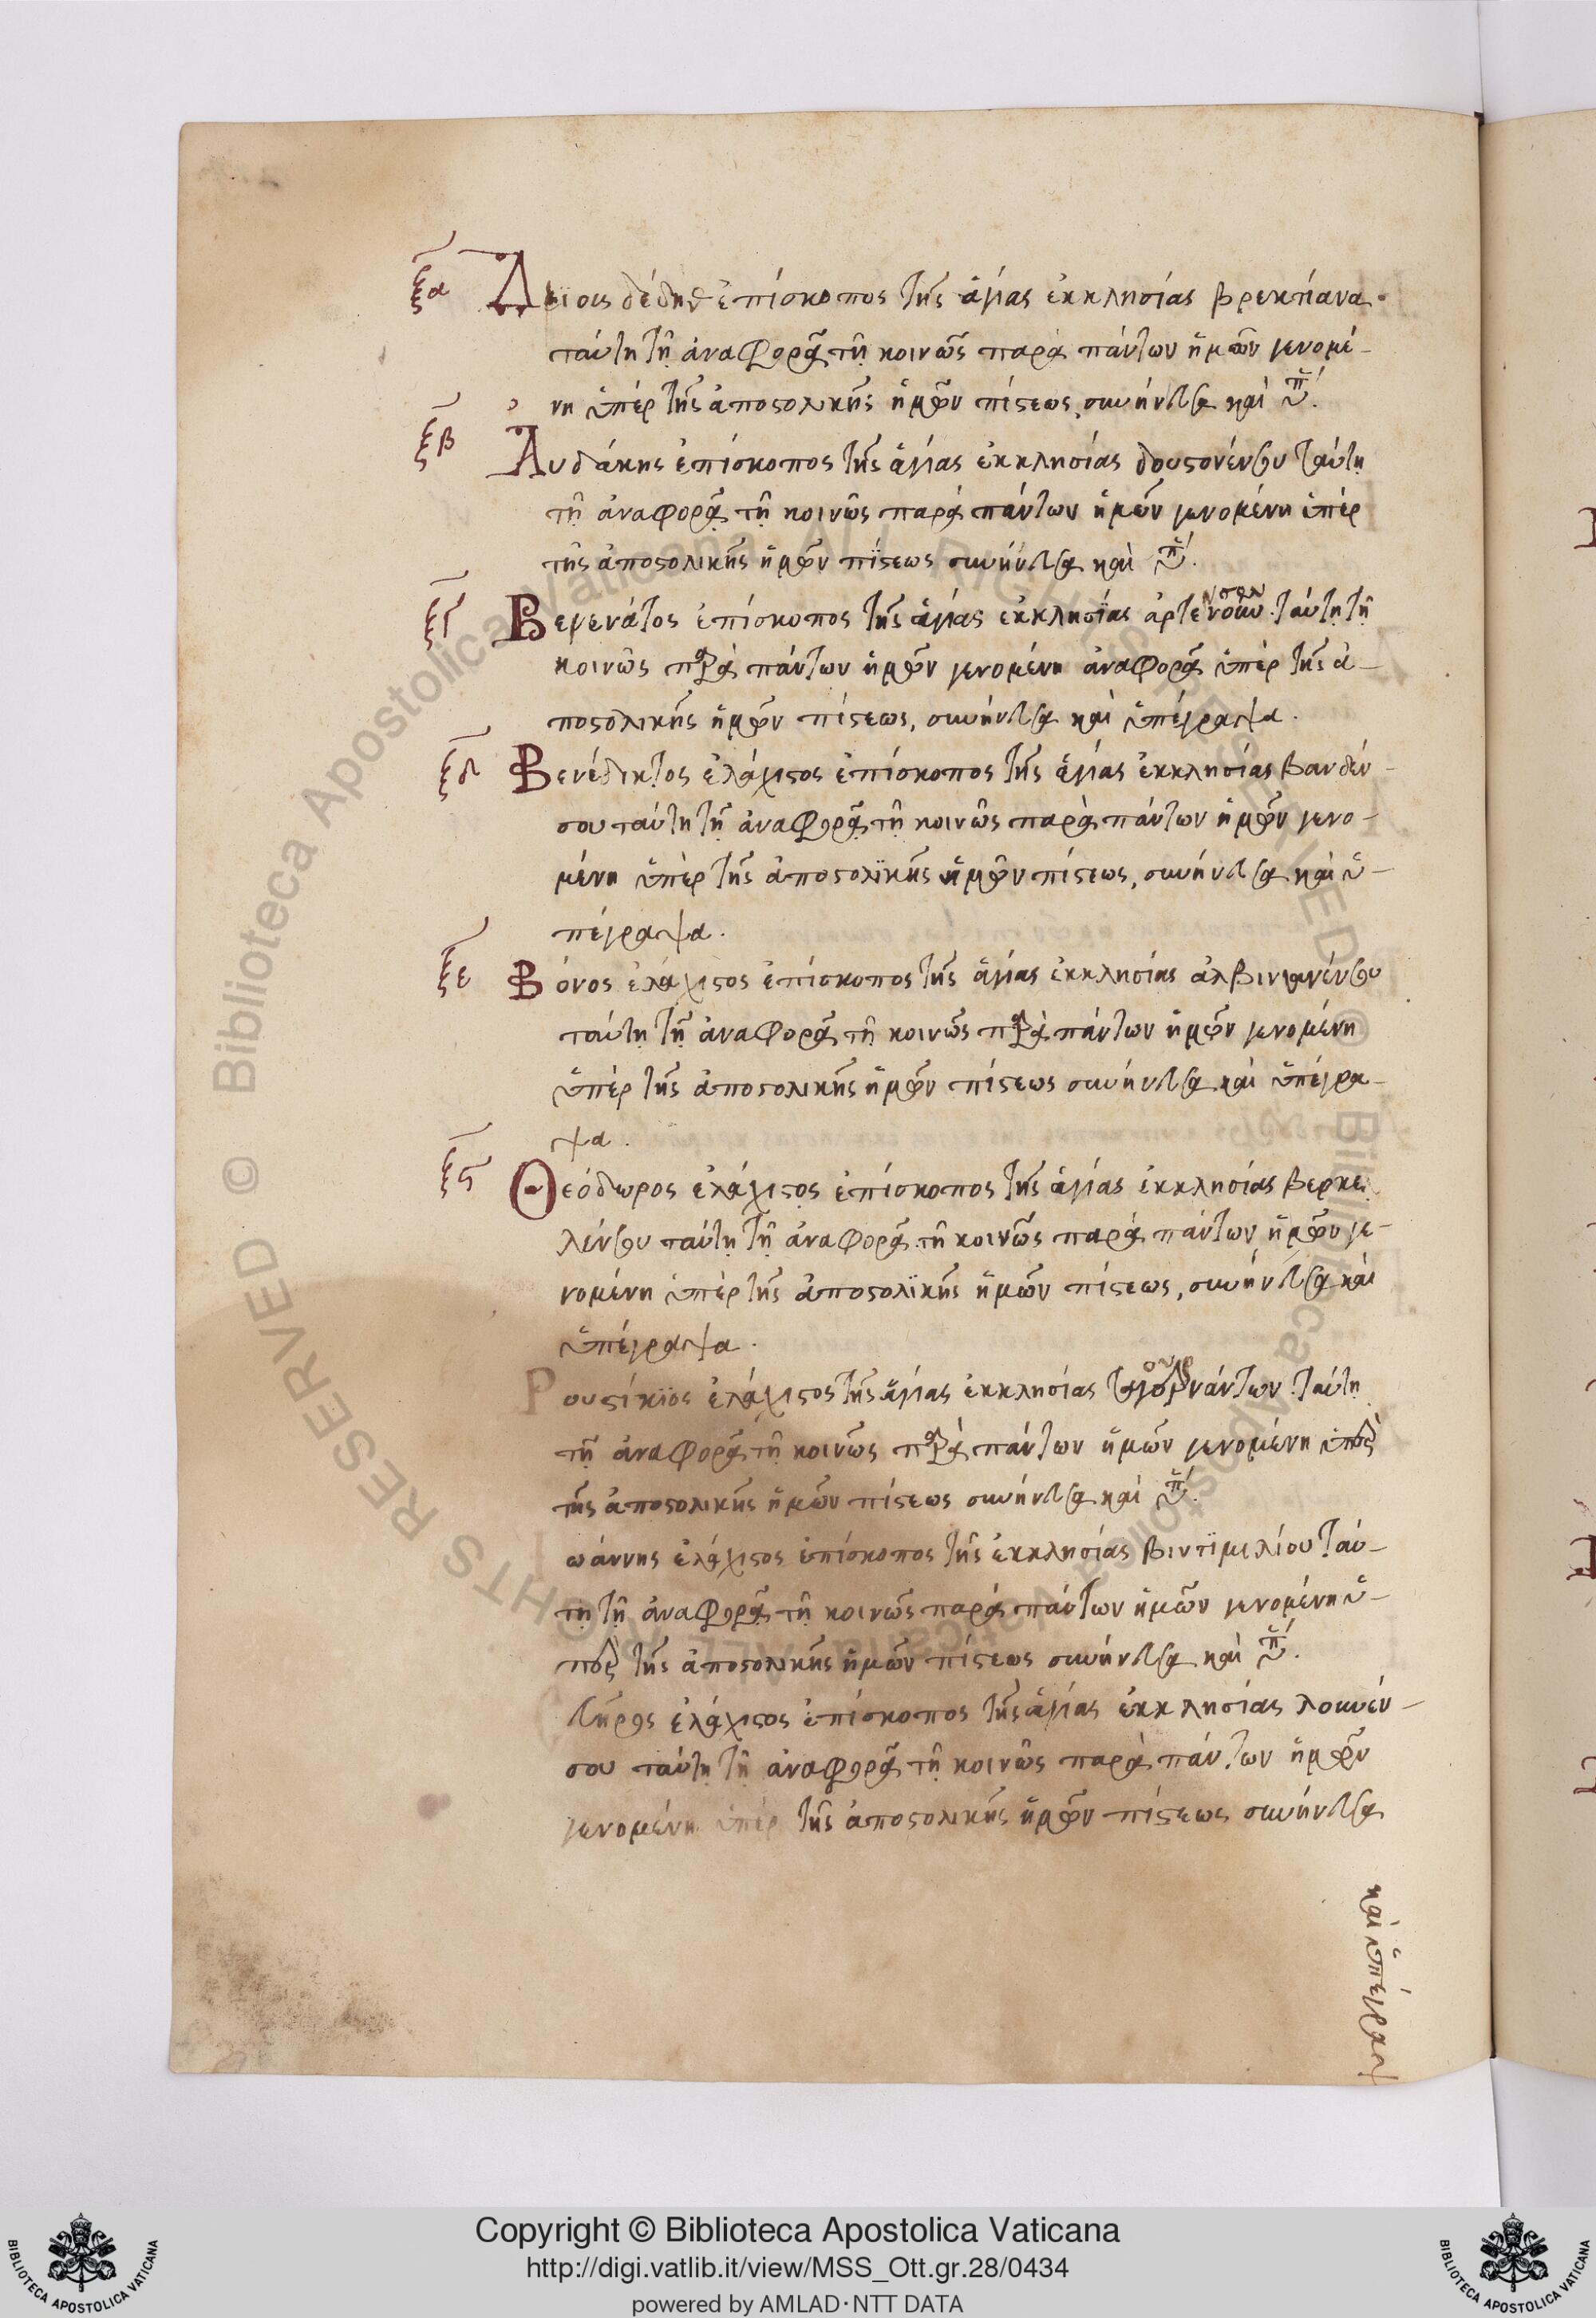 ξα Δεϊους δέδης ἐπίσκοπος τῆς ἁγίας ἐκκλησίας βρεκηάνα.
ταύτη τῆ ἀναφορᾷ τῆ κοινῶς παρὰ πάντων ἡμῶν γενομέ-
νη ὑπὲρ τῆς ἀποστολικῆς ἡμῶν πίστεως, συνήνεσα καὶ ὑπ.
ξβ Αυδάκης ἐπίσκοπος τῆς ἁγίας ἐκκλησίας δουστονένσου ταύτη
τῆ ἀναφορᾷ τῆ κοινῶς παρὰ πάντων ἡμῶν γενομένη ὑπὲρ
τῆς ἀποστολικῆς ἡμῶν πίστεως συνήνεσα καὶ ὑπ.
ξγ Βενενάτος ἐπίσκοπος τῆς ἁγίας ἐκκλησίας ταύτη τῆ
κοινῶς παρὰ πάντων ἡμῶν γενομένη ἀναφορᾷ ὑπὲρ τῆς ἀ-
ποστολικῆς ἡμῶν πίστεως, συνήνεσα καὶ ὑπέγραψα.
ξδ Βενέδικτος ἐλάχιστος ἐπίσκοπος τῆς ἁγίας ἐκκλησίας βανδέν-
σου ταύτη τῆ ἀναφορᾷ τῆ κοινῶς παρὰ πάντων ἡμῶν γενο-
μένη ὑπὲρ τῆς ἀποστολϊκῆς ἡμῶν πίστεως, συνήνεσα καὶ ὑ-
πέγραψα.
ξε Βόνος ἐλάχιστος ἐπίσκοπος τῆς ἁγίας ἐκκλησίας ἀλβινγανένσου
ταύτη τῆ ἀναφορᾷ τῆ κοινῶς παρὰ πάντων ἡμῶν γενομένη
ὑπὲρ τῆς ἀποστολικῆς ἡμῶν πίστεως συνήνεσα καὶ ὑπέγρα-
ψα.
ξς Θεόδωρος ἐλάχιστος ἐπίσκοπος τῆς ἁγίας ἐκκλησίας βερκε
λένσου ταύτη τῆ ἀναφορᾷ τῆ κοινῶς παρὰ πάντων ἡμῶν γε-
νομένη ὑπὲρ τῆς ἀποστολϊκῆς ἡμῶν πίστεως, συνήνεσα καὶ
ὑπέγραψα.
Ρουστίκϊος ἐλάχιστος τῆς ἁγίας ἐκκλησίας ταύτη
τῆ ἀναφορᾷ τῆ κοινῶς παρὰ πάντων ἡμῶν γενομένη ὑπὲρ
τῆς ἀποστολικῆς ἡμῶν πίστεως συνήνεσα καὶ ὑπ.
ωάννης ἐλάχιστος ἐπίσκοπος τῆς ἐκκλησίας βιντϊμιλίου ταύ-
τη τῆ ἀναφορᾷ τῆ κοινῶς παρὰ πάντων ἡμῶν γενομένη ὑ-
πὲρ τῆς ἀποστολικῆς ἡμῶν πίστεως συνήνεσα καὶ ὑπ.
ἐλάχιστος ἐπίσκοπος τῆς ἁγίας ἐκκλησίας λουνέν-
σου ταύτη τῆ ἀναφορᾷ τῆ κοινῶς παρὰ πάντων ἡμῶν
γενομένη ὑπὲρ τῆς ἀποστολικῆς ἡμῶν πίστεως συνήνεσα
καὶ ὑπέγραψ
© Biblioteca Apostolica Vaticana ALL RIGHTS RESERVED
Copyright © Biblioteca Apostolica Vaticana
http://digi.vatlib.it/view/MSS_Ott.gr.28/0434
powered by AMLAD·NTT DATA
BIBLIOTECA APOSTOLICA VATICANA
BIBLIOTECA APOSTOLICA VATICANA